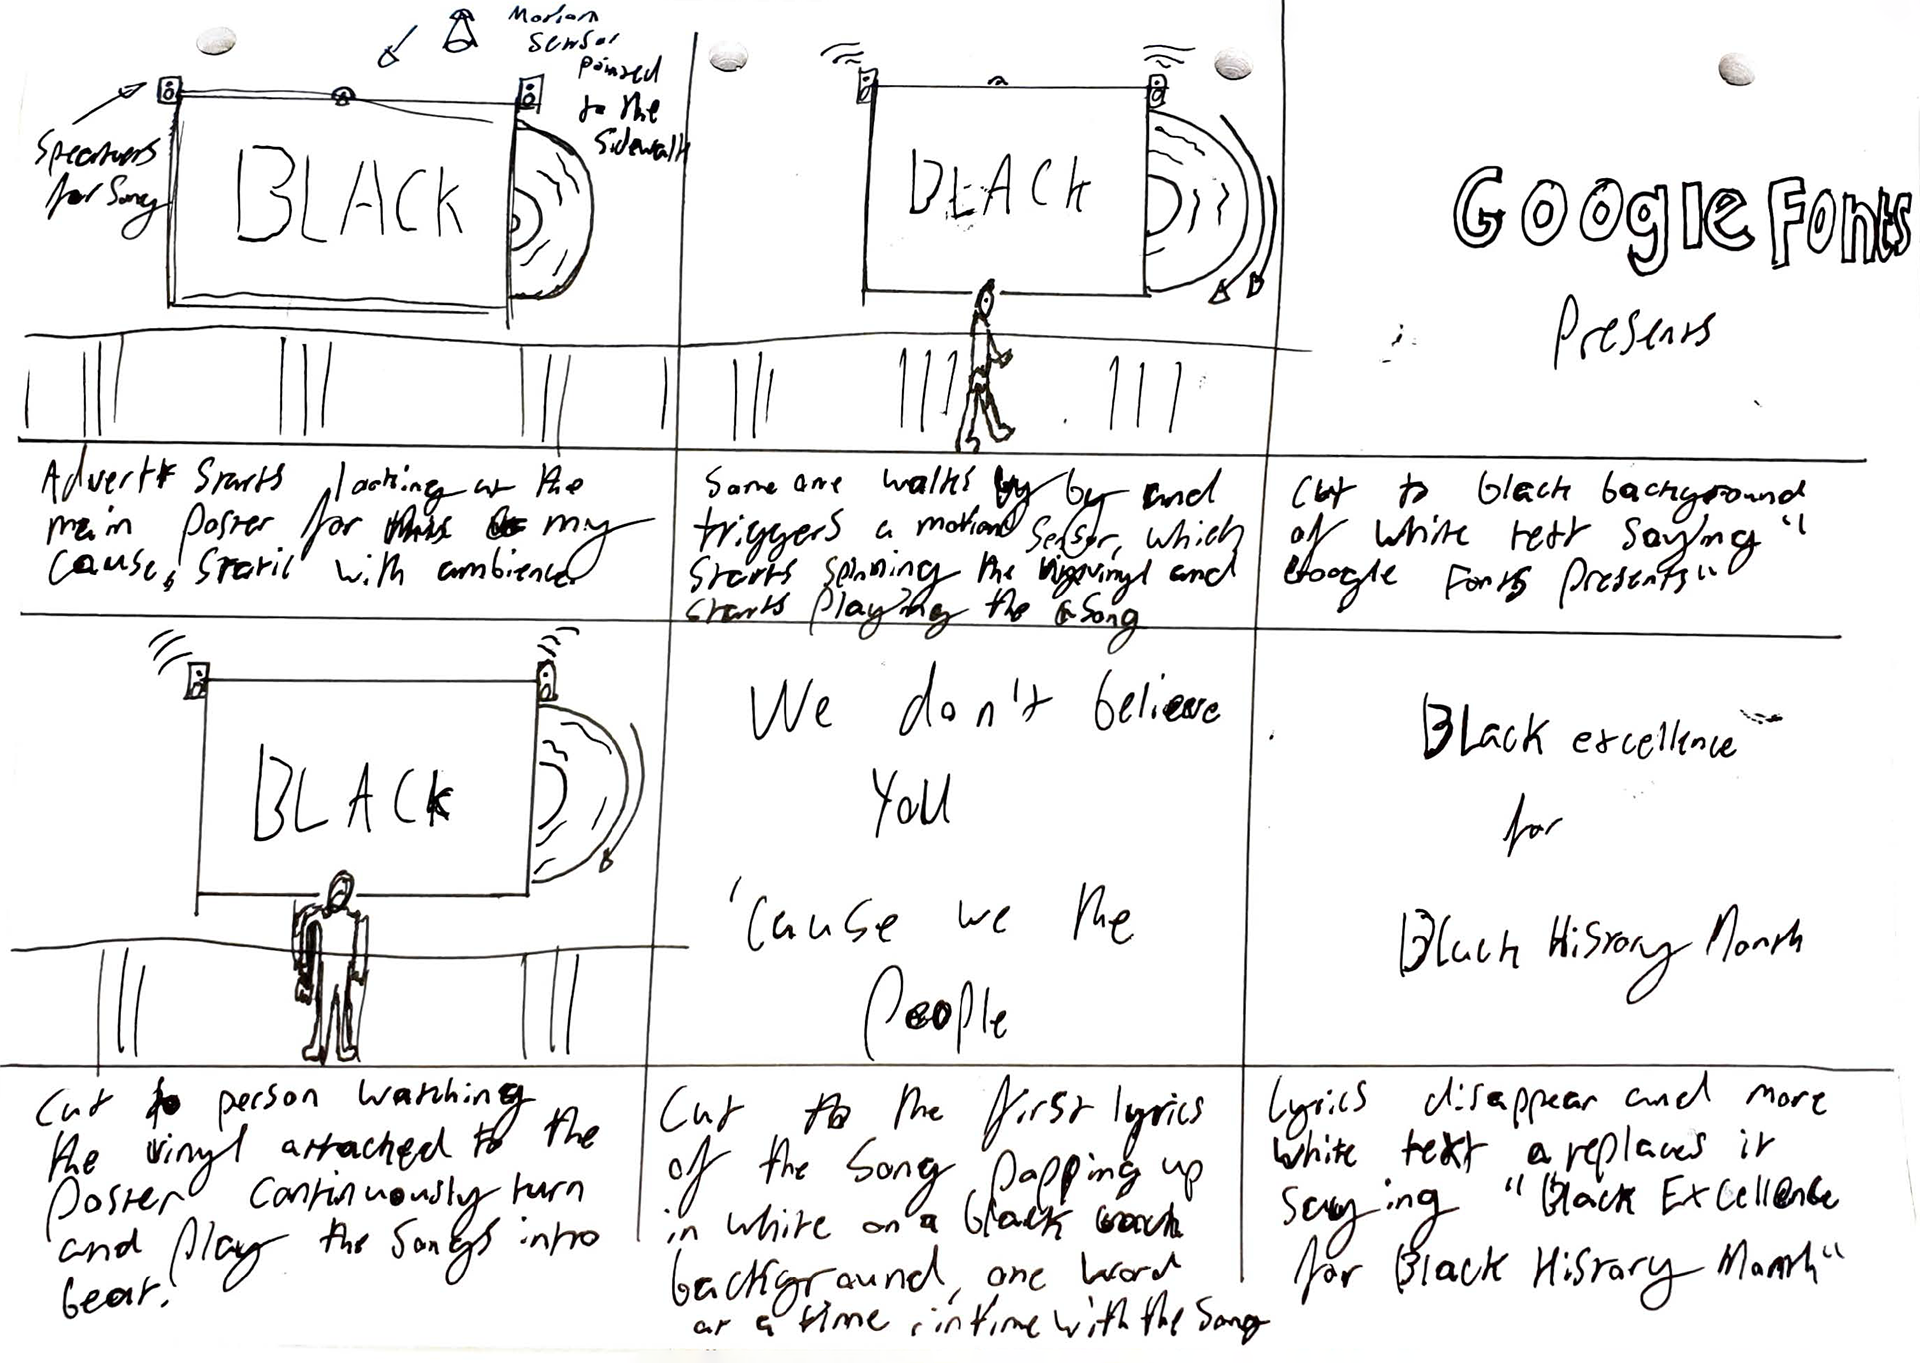 Motion
sensor
pointed
to the
Sidewalk
Speakers
for Song
BLACK
BLACK
Google Fonts
Presents
Advert Starts looking at the
main poster for my
cause, static with ambience
Someone walks by and
triggers a motion sensor, which
starts spinning the vinyl and
starts playing the song
Cut to black background
of white text saying "
Google Fonts Presents"
BLACK
We don't believe
You
'cause we the
People
BLack excellence
for
Black History Month
Cut to person watching
the vinyl attached to the
poster continuously turn
and play the songs intro
beat.
Cut to the first lyrics
of the song popping up
in white on a black
background, one word
at a time in time with the song
Lyrics disappear and more
white text replaces it
saying "Black Excellence
for Black History Month"